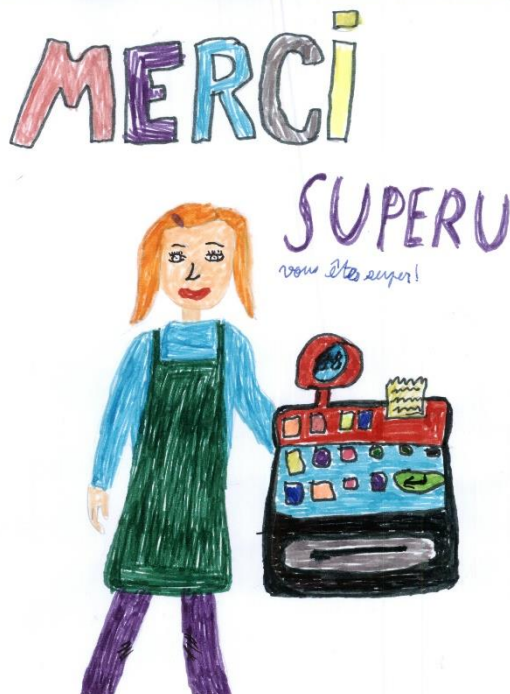 MERCi
SUPERU
vous êtes super!